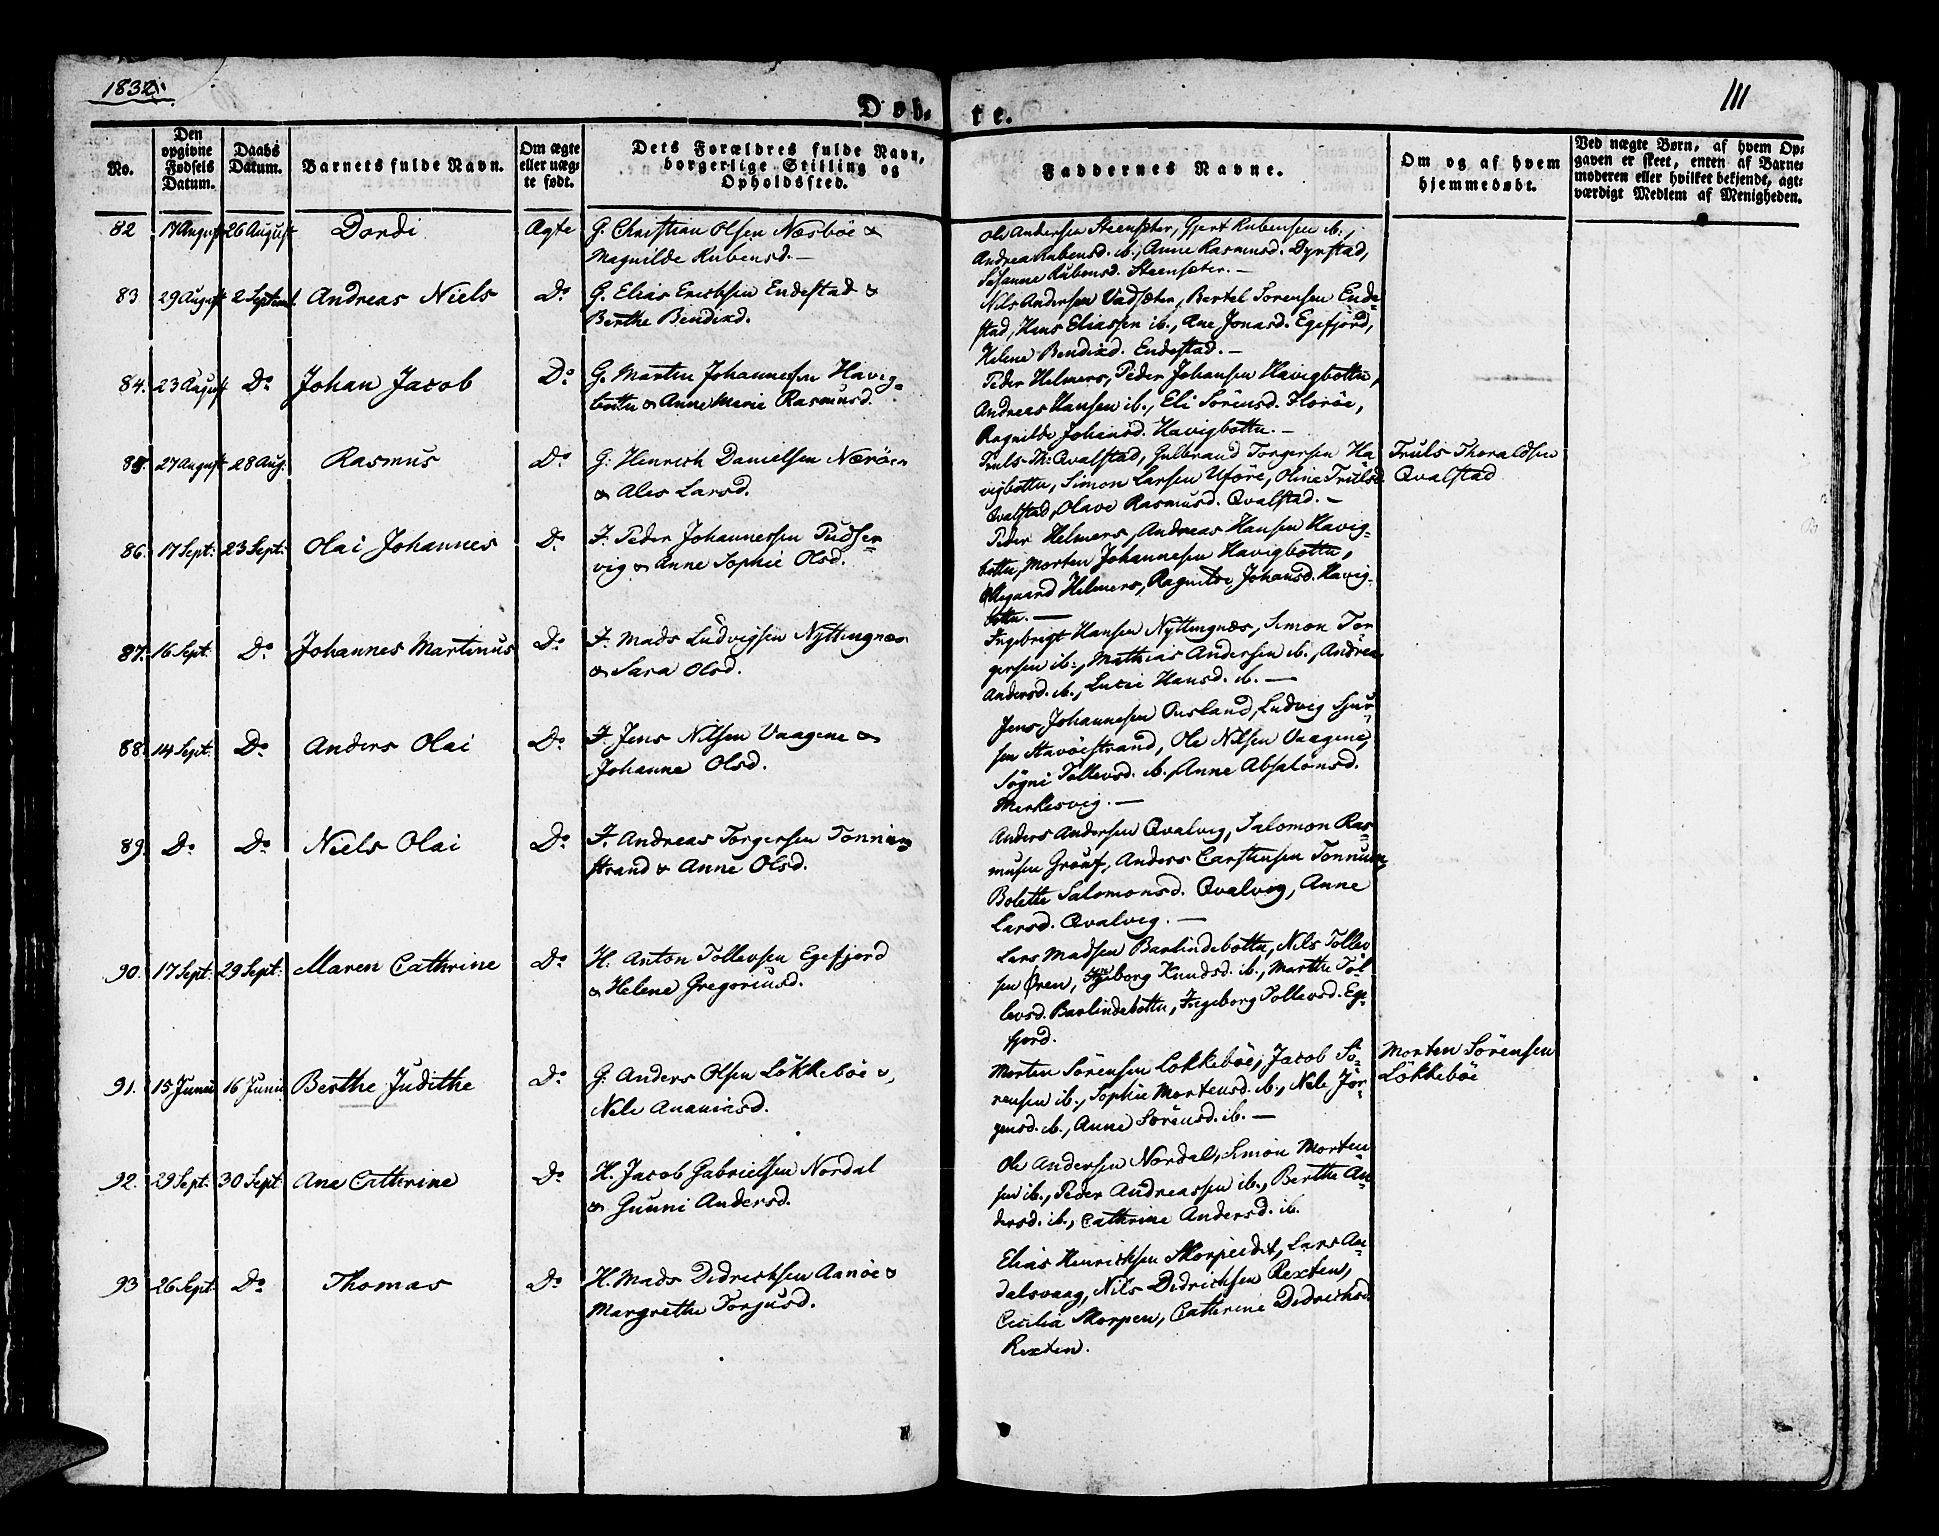 1832.
111
Døb-
te.
No.
Den opgivne Fødsels Datum.
Daabs Datum.
Barnets fulde Navn.
Om ægte eller uæg- te født.
Dets Forældres fulde Navn, borgerlige Stilling og Opholdssted.
Faddernes Navne.
Om og af hvem hjemmedøbt.
Ved uægte Børn, af hvem Op-
gaven er skeet, enten af Barne-
moderen eller hvilket bekjendt, agt-
værdigt Medlem af Menigheden.
82 17 August 26 August Dordi Ægte G. Christian Olsen Næsböe &
Magnilde Rubensd. —
Ole Andersen Steensæter, Gjert Rubensen ib.,
Andrea Rubensd. ib., Anne Rasmusd. Dyrstad,
Susanne Rubensd. Steensæter. —
83 29 August 2 Septemb. Andreas Niels Do G. Elias Erichsen Endestad &
Berthe Bendixd.
Nils Andersen Vadsæter, Bertel Sörensen Ende-
stad, Hans Eliassen ib., Ane Jonasd. Egefjord,
Helene Bendixd. Endestad. —
84. 23 August Do Johan Jacob Do G. Martin Johannessen Havig-
botten & Anne Marie Rasmusd.
Peder Helmers, Peder Johansen Havigbotten,
Andreas Hansen ib., Eli Sörensd. Floröe,
Ragnilde Johansd. Havigbotten. —
85. 27 August 28 Aug. Rasmus Do G. Henrich Danielsen Næröen
& Ales Larsd.
Truls Th: Qvalstad, Gulbrand Torgersen Ha
vigbotten, Simon Larsen Uföre, Oline Trulsd.
Qvalstad, Olave Rasmusd. Qvalstad. —
Truls Thoraldsen
Qvalstad
86. 17 Sept. 23 Sept. Olai Johannes Do F. Peder Johannessen Pudser-
vig & Anne Sophie Olsd.
Peder Helmers, Andreas Hansen Havig-
botten, Morten Johannesen Havigbotten,
Aagaard Helmers, Ragnilde Johansd. Havig-
botten. —
87. 16 Sept. Do Johannes Martinus Do F. Mads Ludvigsen Nyttingnæs
& Sara Olsd.
Ingebrigt Hansen Nyttingnæs, Simon Tor
gersen ib., Mathias Andersen ib., Andrea
Andersd. ib., Lucie Hansd. ib. —
88. 14 Sept. Do Anders Olai Do F. Jens Nilsen Vaagene &
Johanne Olsd.
Jens Johannesen Ousland, Ludvig Sjur-
sen Stavöestrand, Ole Nilsen Vaagene,
Sögni Tollevsd. ib., Anne Absalonsd.
Merkesvig. —
89. Do Do Niels Olai Do F. Andreas Torgersen Tonning
strand & Anne Olsd.
Anders Andersen Qvalvig, Salomon Ras-
musen Grouf, Anders Carstensen Tonnum,
Bolette Salomonsd. Qvalvig, Anne
Larsd. Qvalvig. —
90. 17 Sept. 29 Sept. Maren Cathrine Do H. Anton Tollevsen Egefjord
& Helene Gregoriusd.
Lars Madsen Barlindebotten, Nils Tollev
sen Øren, Ingeborg Knudsd. ib., Marthe Tol-
levsd. Barlindebotten, Ingeborg Tollevsd. Ege-
fjord.
91. 15 Junii 16 Junii Berthe Judithe Do G. Anders Olsen Lökkeböe &
Nele Ananiasd.
Morten Sörensen Lökkeböe, Jacob Sö-
rensen ib., Sophie Mortensd. ib., Nele Jör-
gensd. ib., Anne Sörensd. ib. —
Morten Sörensen
Lökkeböe
92. 29 Sept. 30 Sept. Ane Cathrine Do H. Jacob Gabrielsen Nordal
& Gunni Andersd.
Ole Andersen Nordal, Simon Morten-
sen ib., Peder Andreassen ib., Berthe An-
dersd. ib., Cathrine Andersd. ib.
93 26 Sept. Do Thomas Do H. Mads Didrichsen Aanöe &
Margrethe Torjusd.
Elias Henrichsen Skorpeidet, Lars An-
dalsvaag, Nils Didrichsen Rexten,
Cicilia Skorpen, Cathrine Didrichsd.
Rexten.